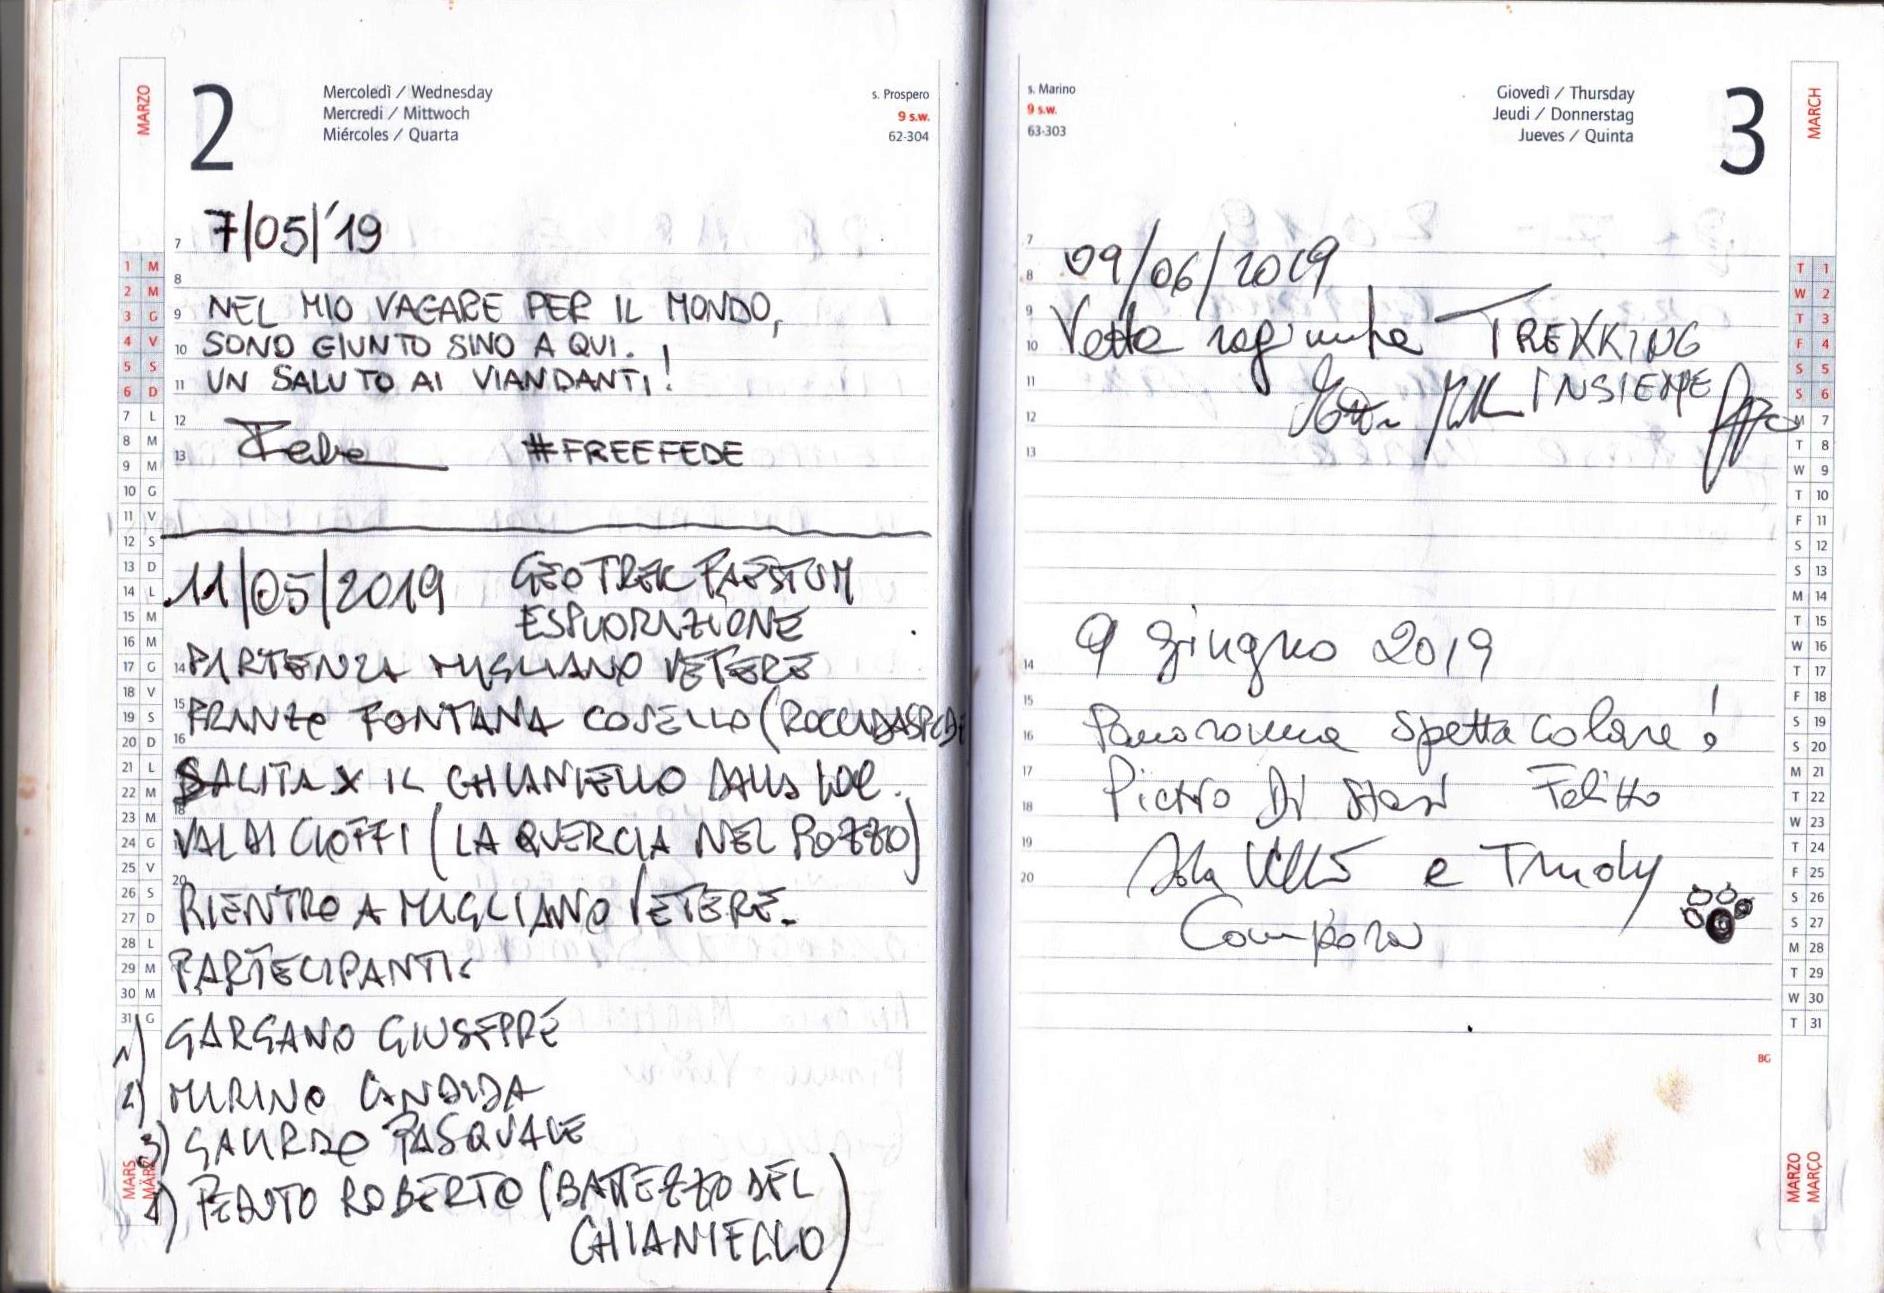 MARZO
2
Mercoledì / Wednesday
Mercredi / Mittwoch
Miércoles / Quarta
s. Prospero
9 s.w.
62-304
7/05/'19
NEL MIO VAGARE PER IL MONDO,
SONO GIUNTO SINO A QUI.
UN SALUTO AI VIANDANTI!
#FREEFEDE
11/05/2019 GEOTREK PAESTUM
ESPLORAZIONE
PARTENZA MAGLIANO VETERE
FRANZO FONTANA COSELLO (ROCCADASPIDE
SALITA X IL CHIANIELLO DALLA LOC.
VAL DI CIOFFI (LA QUERCIA NEL POZZO)
RIENTRO A MAGLIANO VETERE.
PARTECIPANTI:
1) GARGANO GIUSEPPE
2) MARINO CANDIDA
3) GAURDO PASQUALE
4) PEDUTO ROBERTO (BATTEZZO DEL
CHIANIELLO)
7
8
9
10
11
12
13
14
15
16
18
20
1 M
2 M
3 G
4 V
5 S
6 D
7 L
8 M
9 M
10 G
11 V
12 S
13 D
14 L
15 M
16 M
17 G
18 V
19 S
20 D
21 L
22 M
23 M
24 G
25 V
26 S
27 D
28 L
29 M
30 M
31 G
MARS
MÄRZ
s. Marino
9 s.w.
63-303
Giovedì / Thursday
Jeudi / Donnerstag
Jueves / Quinta
3
MARCH
09/06/2019
Vetta raggiunta TREKKING
INSIEME
9 giugno 2019
Panorama spettacolare!
Pietro Di Stasi Felitto
e Trudy
Campora
7
8
9
10
11
12
13
14
15
16
17
18
19
20
T 1
W 2
T 3
F 4
S 5
S 6
M 7
T 8
W 9
T 10
F 11
S 12
S 13
M 14
T 15
W 16
T 17
F 18
S 19
S 20
M 21
T 22
W 23
T 24
F 25
S 26
S 27
M 28
T 29
W 30
T 31
BG
MARZO
MARÇO